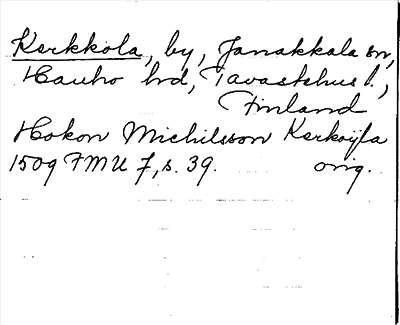 Kerkkola, by, Janakkala sn,
Hauho hd, Tavastehus l.,
Finland
Hokon Michilsson Kerkoyla
1509 FMU 7, s. 39. orig.